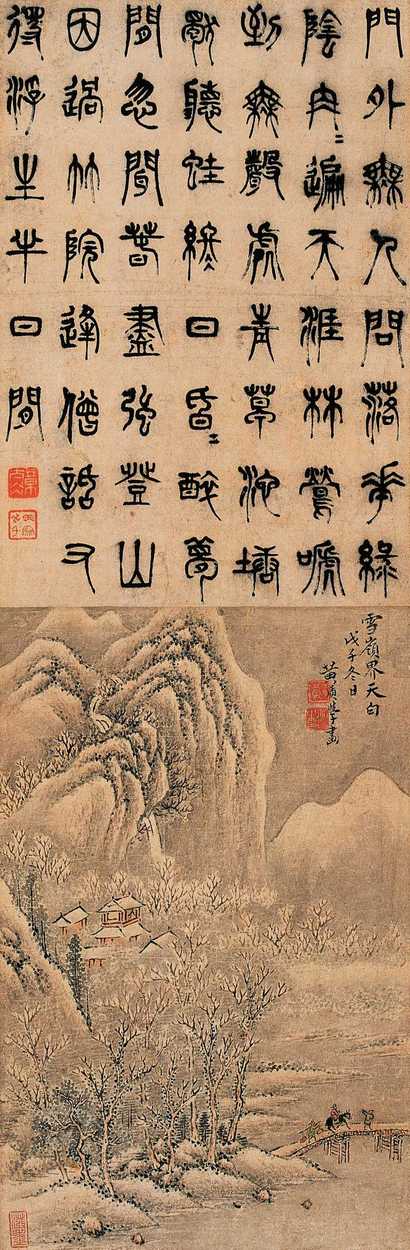 門外無人問落花綠
陰冉〻遍天涯林鶯啼
到無聲處青草池塘
獨聽蛙終日昏〻醉夢
間忽聞春盡強登山
因過竹院逢僧話又
得浮生半日閒
雪嶺界天白
戊子冬日
黃畫